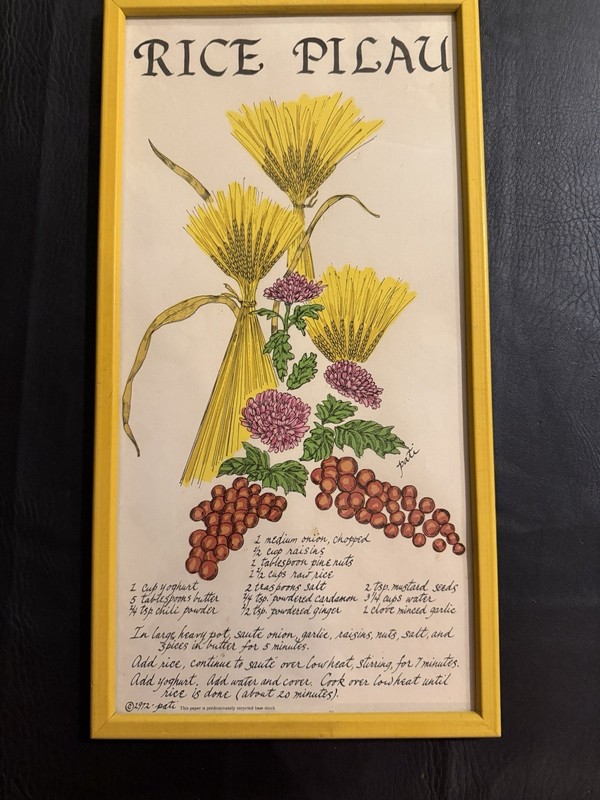 RICE PILAU
pati
1 medium onion, chopped
1/2 cup raisins
1 tablespoon pine nuts
1 1/2 cups raw rice
1 cup yoghurt
5 tablespoons butter
3/4 tsp chili powder
2 teaspoons salt
1/4 tsp. powdered cardamon
1/2 tsp. powdered ginger
2 tsp. mustard seeds
3 1/4 cups water
1 clove minced garlic
In large, heavy pot, sauté onion, garlic, raisins, nuts, salt, and
spices in butter for 5 minutes.
Add rice, continue to sauté over low heat, stirring, for 7 minutes.
Add yoghurt. Add water and cover. Cook over low heat until
rice is done (about 20 minutes).
©1972 - pati This paper is predominately recycled base stock